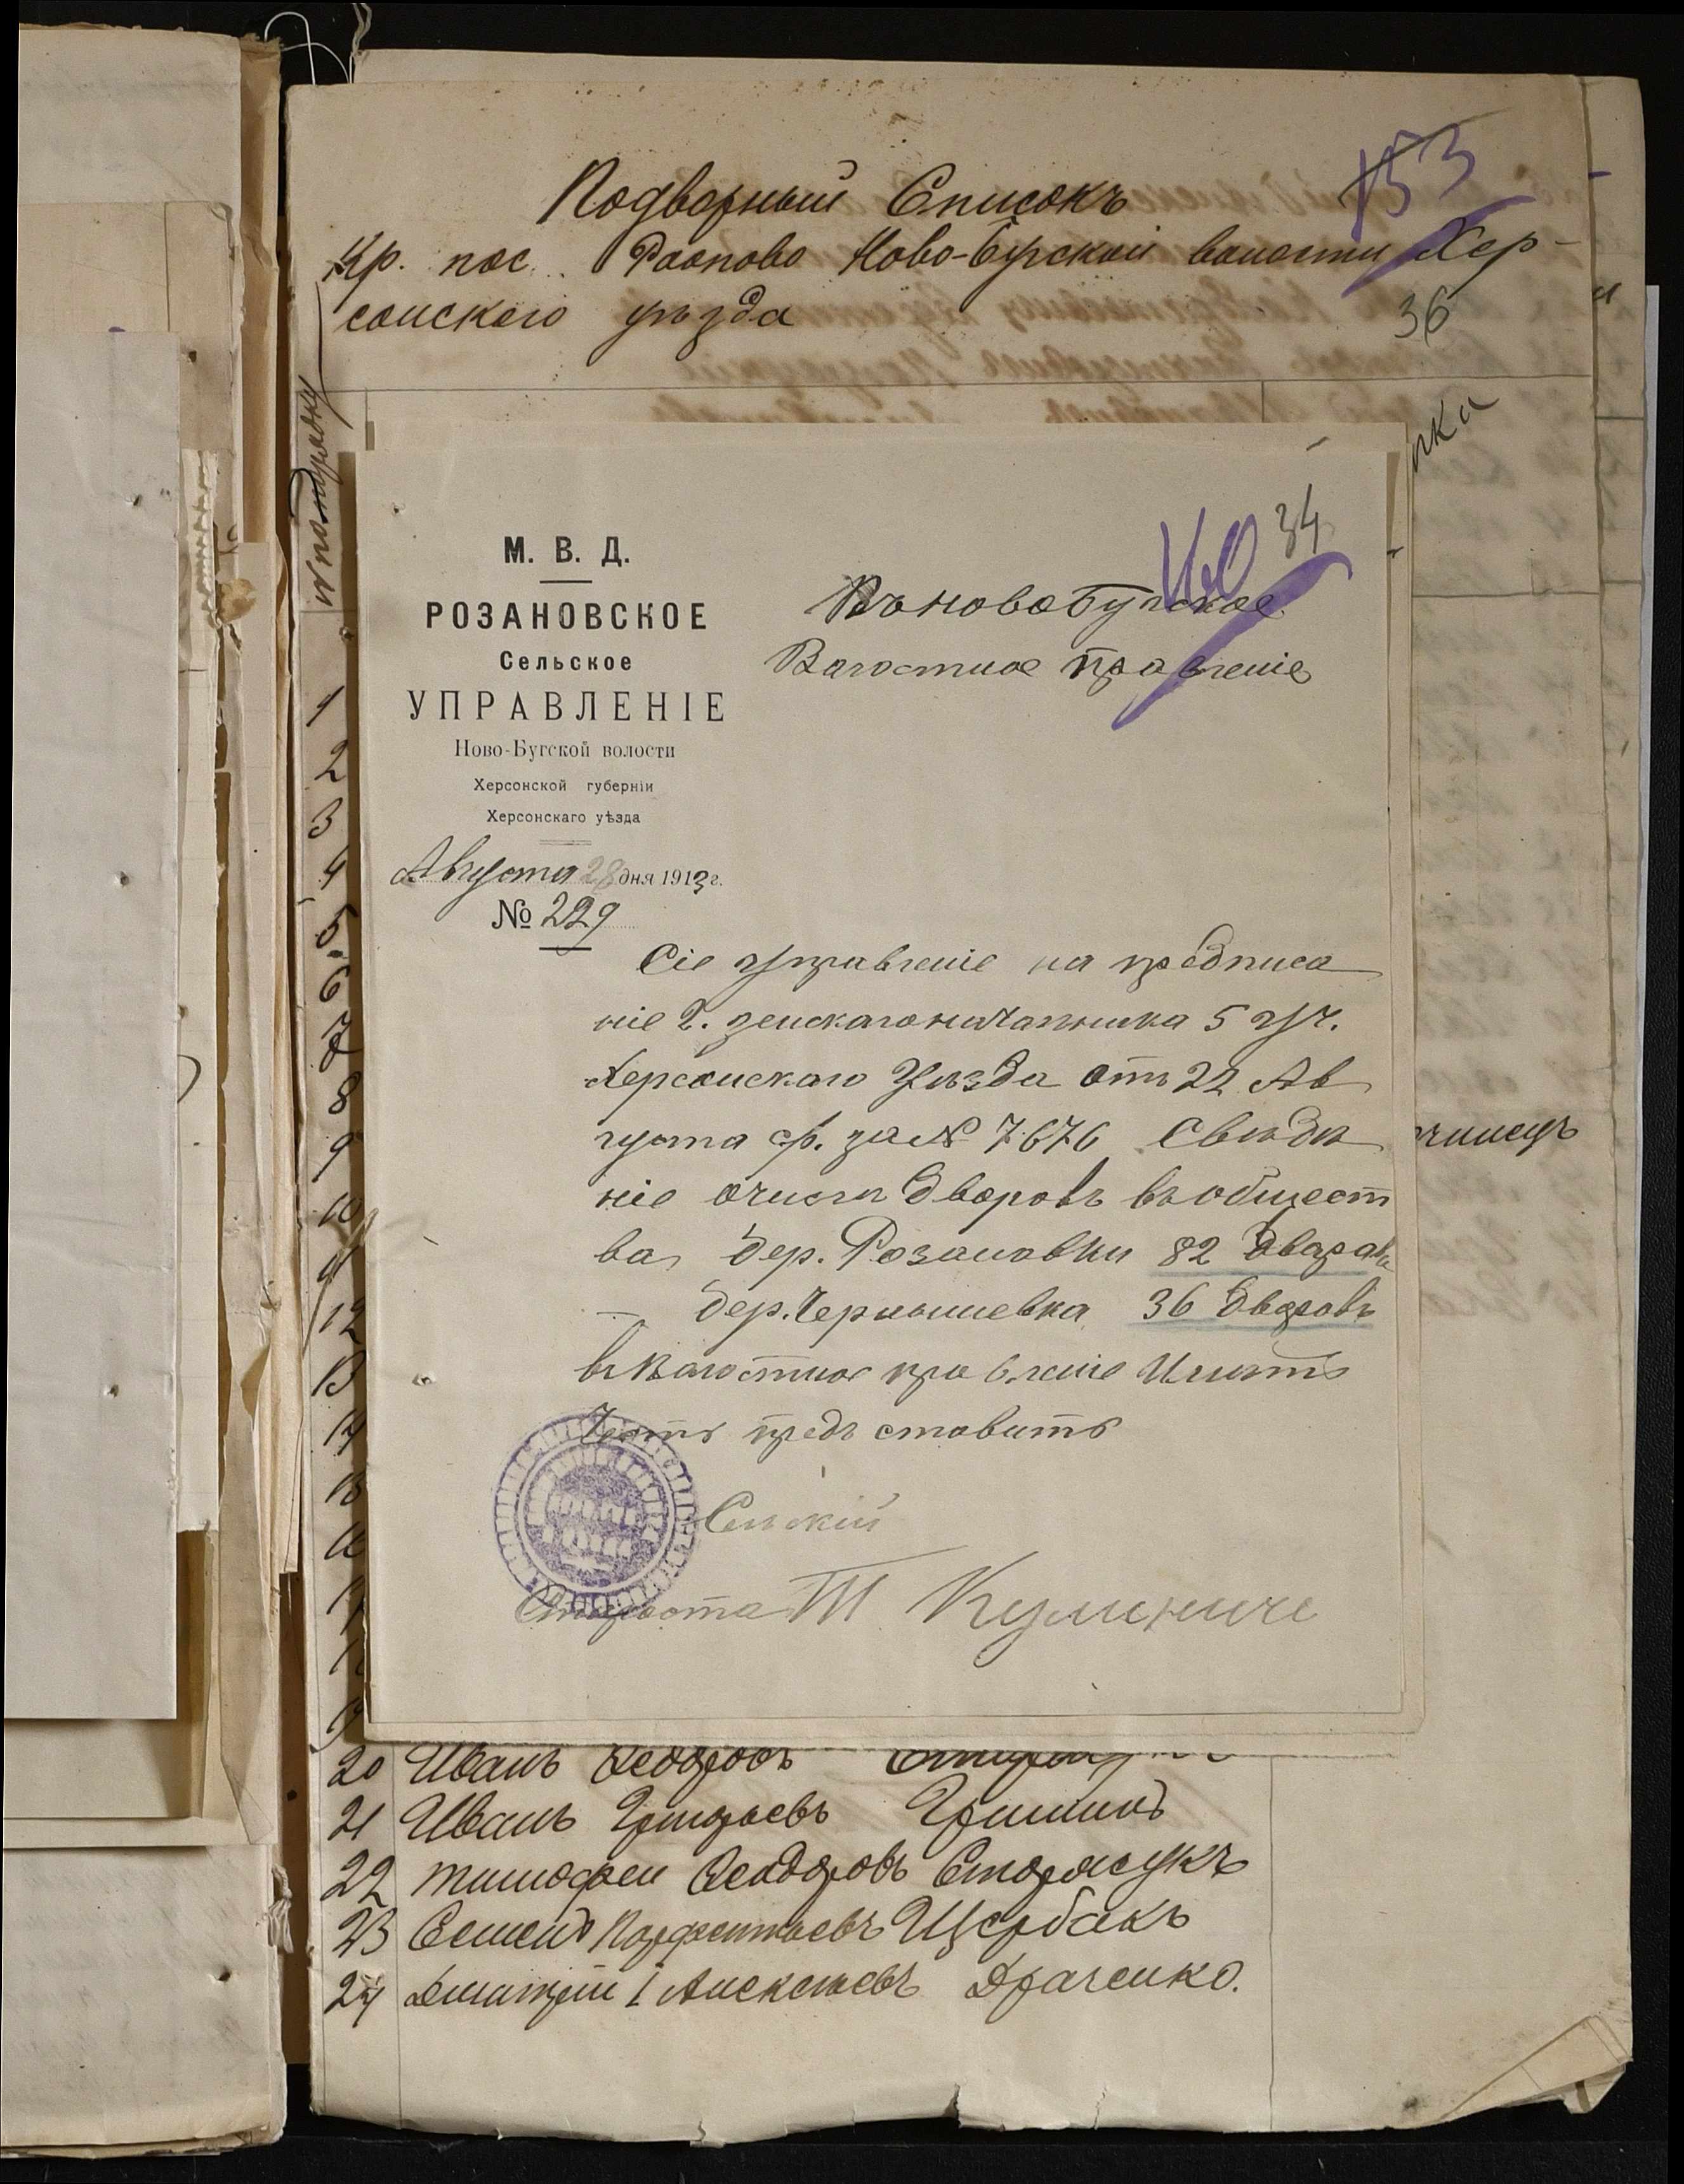 Подворный Списокъ
Кр. пос. Ново-Бугской волости Хер-
сонскаго уѣзда
153
36
№ по порядку
М. В. Д.
РОЗАНОВСКОЕ
Сельское
УПРАВЛЕНІЕ
Ново-Бугской волости
Херсонской губерніи
Херсонскаго уѣзда
Августа 28 дня 1913 г.
№ 229
34
Въ новобугское
Волостное правленіе
Сіе управленіе на предписа
ніе Г. земскаго начальника 5 уч.
Херсонскаго Уѣзда отъ 22 Ав
густа с/г. за № 7676 Свѣдѣ
ніе о числѣ дворовъ въ общест
ва дер. Розановки 82 двора
— дер. Чернышевка 36 дворовъ
въ Волостное правленіе Имѣтъ
Честь предъставить
Сельскій
Староста Т Кулиниче
1
2
3
4
5
6
7
8
9
10
11
12
13
14
15
16
17
18
19
20 Иванъ Федоровъ
21 Иванъ Григорьевъ Гришинъ
22 Тимофей Феодоровъ Сторожукъ
23 Семенъ Парфентьевъ Щербакъ
24 Дмитрій Алексѣевъ Драченко.